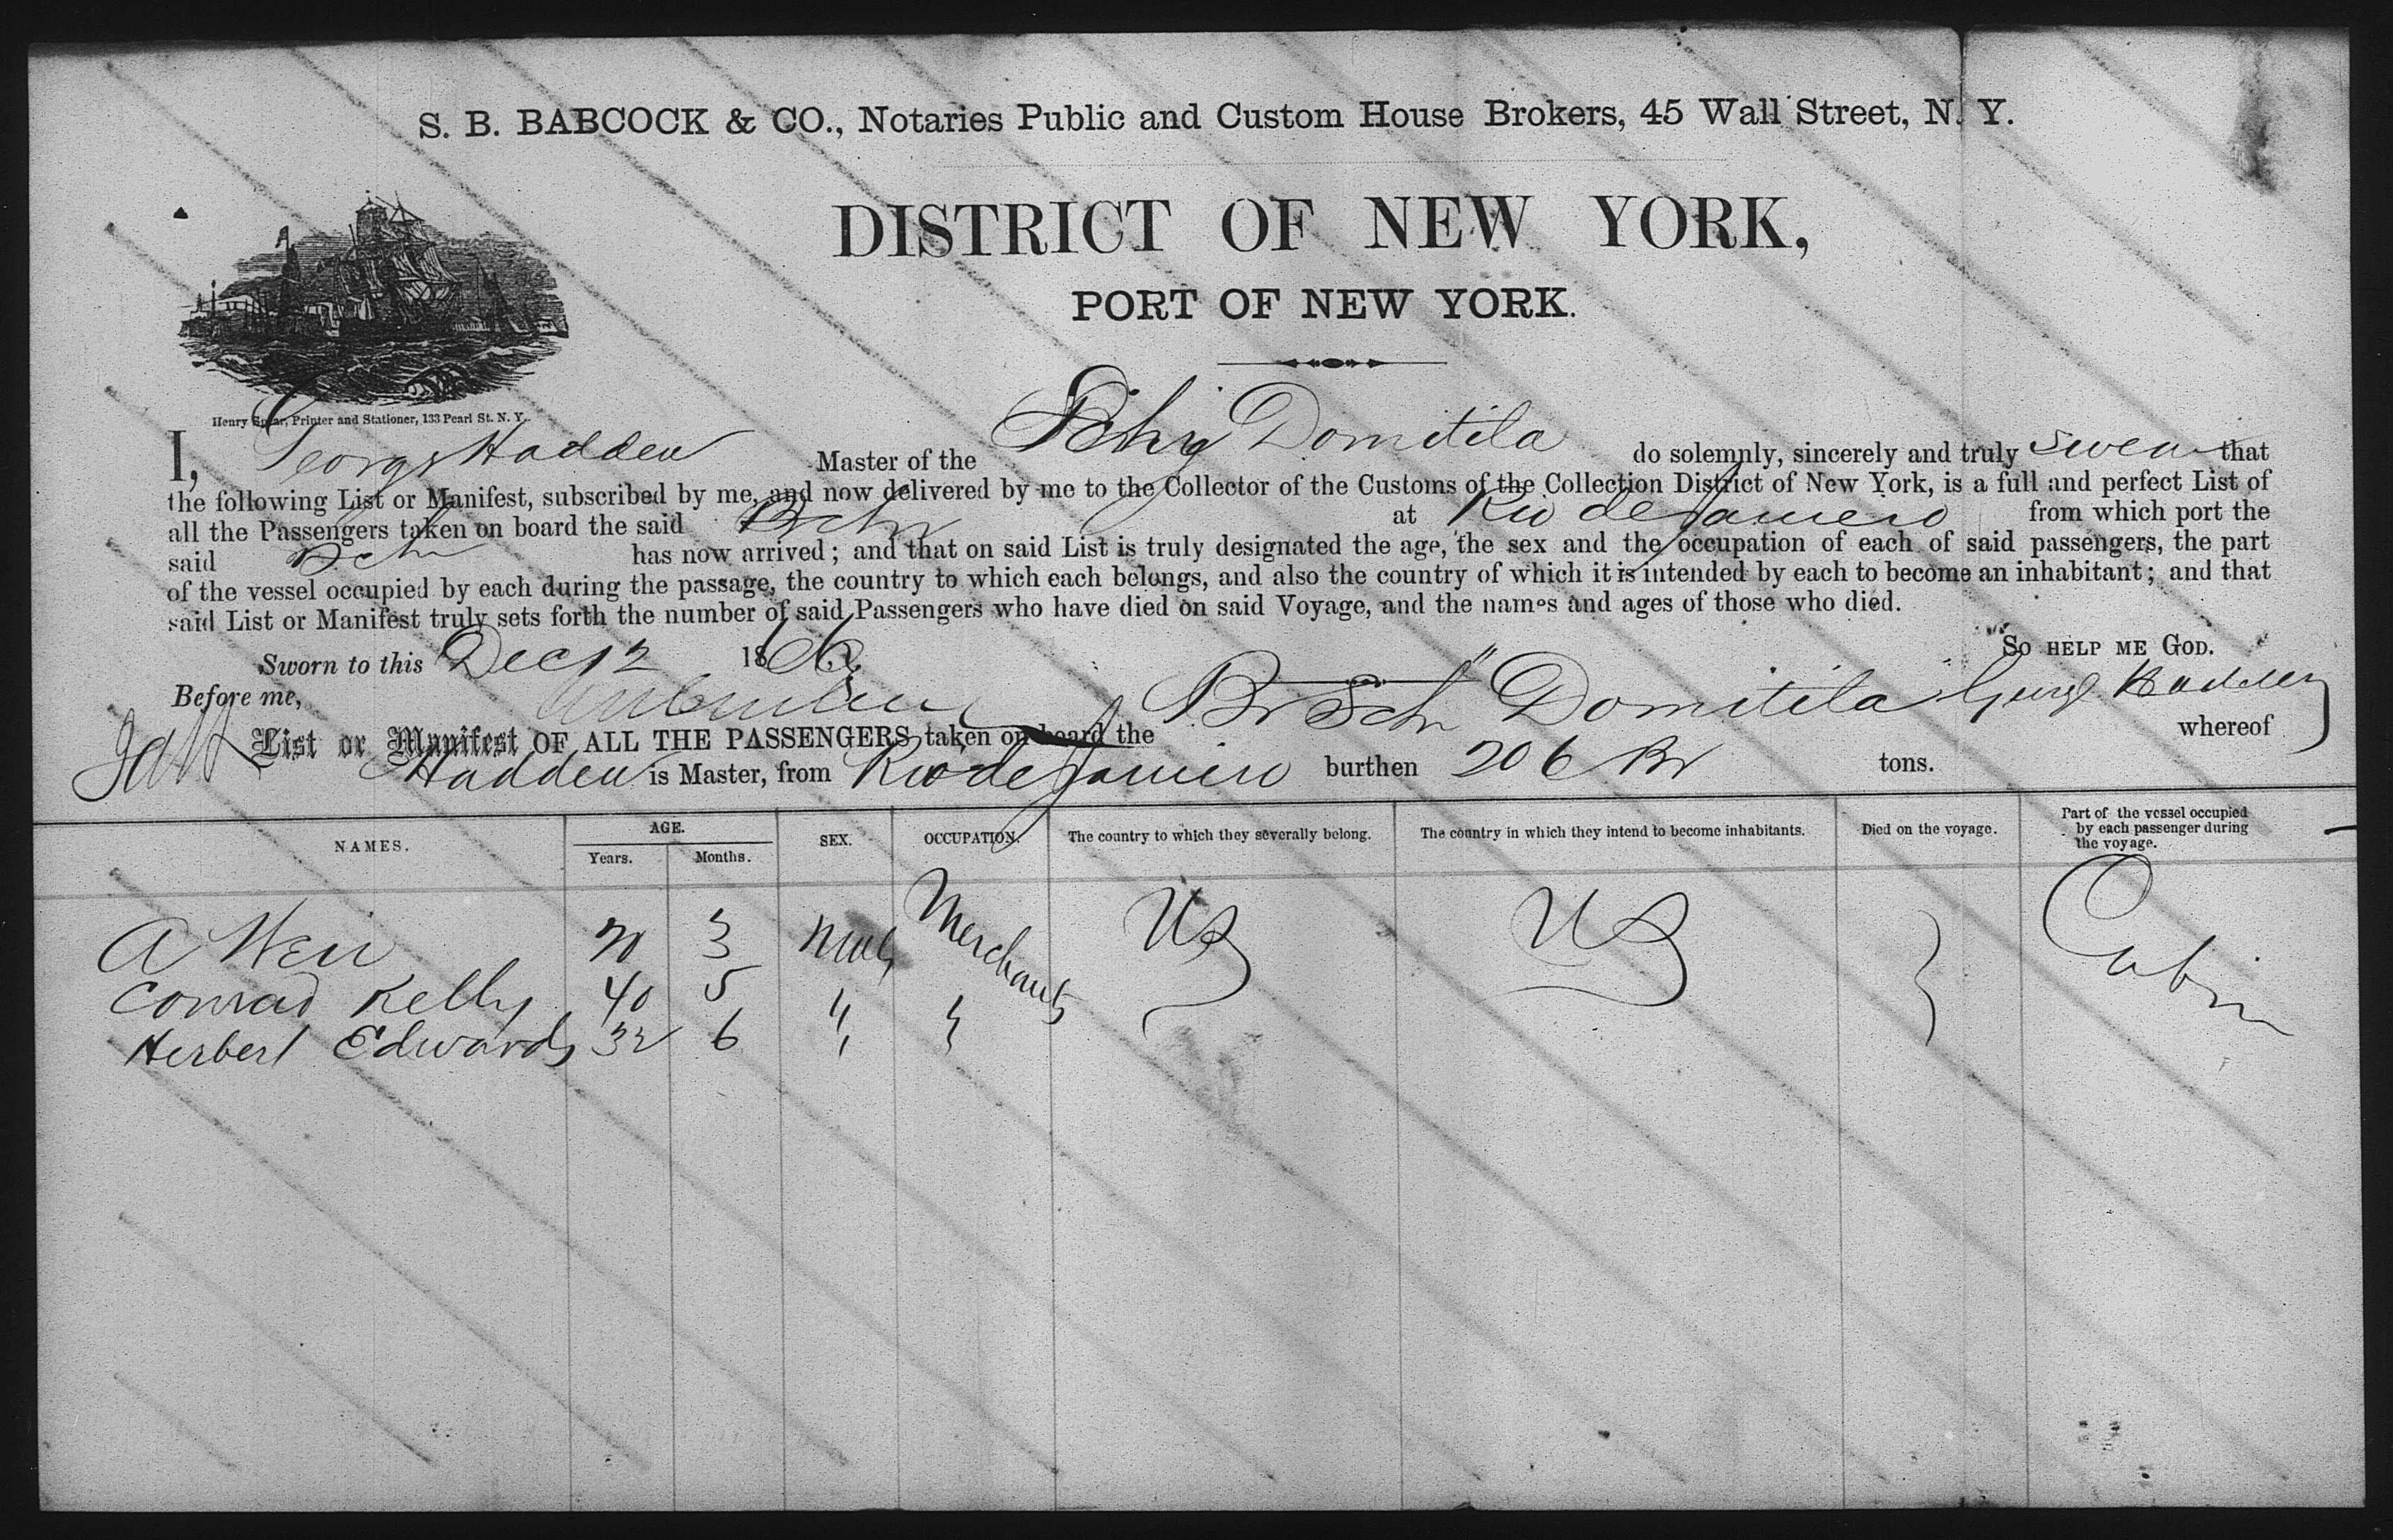 S. B. BABCOCK & CO., Notaries Public and Custom House Brokers, 45 Wall Street, N. Y.
DISTRICT OF NEW YORK,
PORT OF NEW YORK.
Henry Spear, Printer and Stationer, 133 Pearl St. N. Y.
I, George Hadden Master of the Domitila do solemnly, sincerely and truly swear that
the following List or Manifest, subscribed by me, and now delivered by me to the Collector of the Customs of the Collection District of New York, is a full and perfect List of
all the Passengers taken on board the said Schr at Rio de Janeiro from which port the
said Schr has now arrived; and that on said List is truly designated the age, the sex and the occupation of each of said passengers, the part
of the vessel occupied by each during the passage, the country to which each belongs, and also the country of which it is intended by each to become an inhabitant; and that
said List or Manifest truly sets forth the number of said Passengers who have died on said Voyage, and the names and ages of those who died.
Sworn to this Dec 12 186 SO HELP ME GOD.
Before me,
List or Manifest OF ALL THE PASSENGERS taken on board the Br Schr "Domitila" whereof
Hadden is Master, from Rio de Janeiro burthen 206 tons.
NAMES. AGE. Years. Months. SEX. OCCUPATION. The country to which they severally belong. The country in which they intend to become inhabitants. Died on the voyage. Part of the vessel occupied by each passenger during the voyage.
A Weir 3 Male Merchants US US Cabin
Conrad Kelly 40 5 "
Herbert Edwards 32 6 "